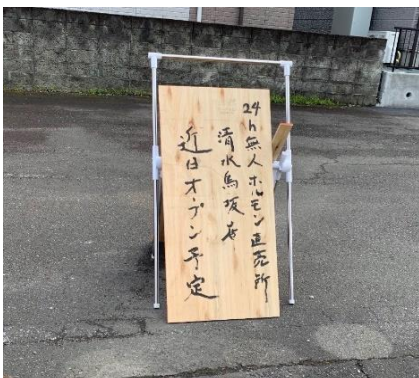 24h無人ホルモン直売所
清水鳥坂店
近日オープン予定